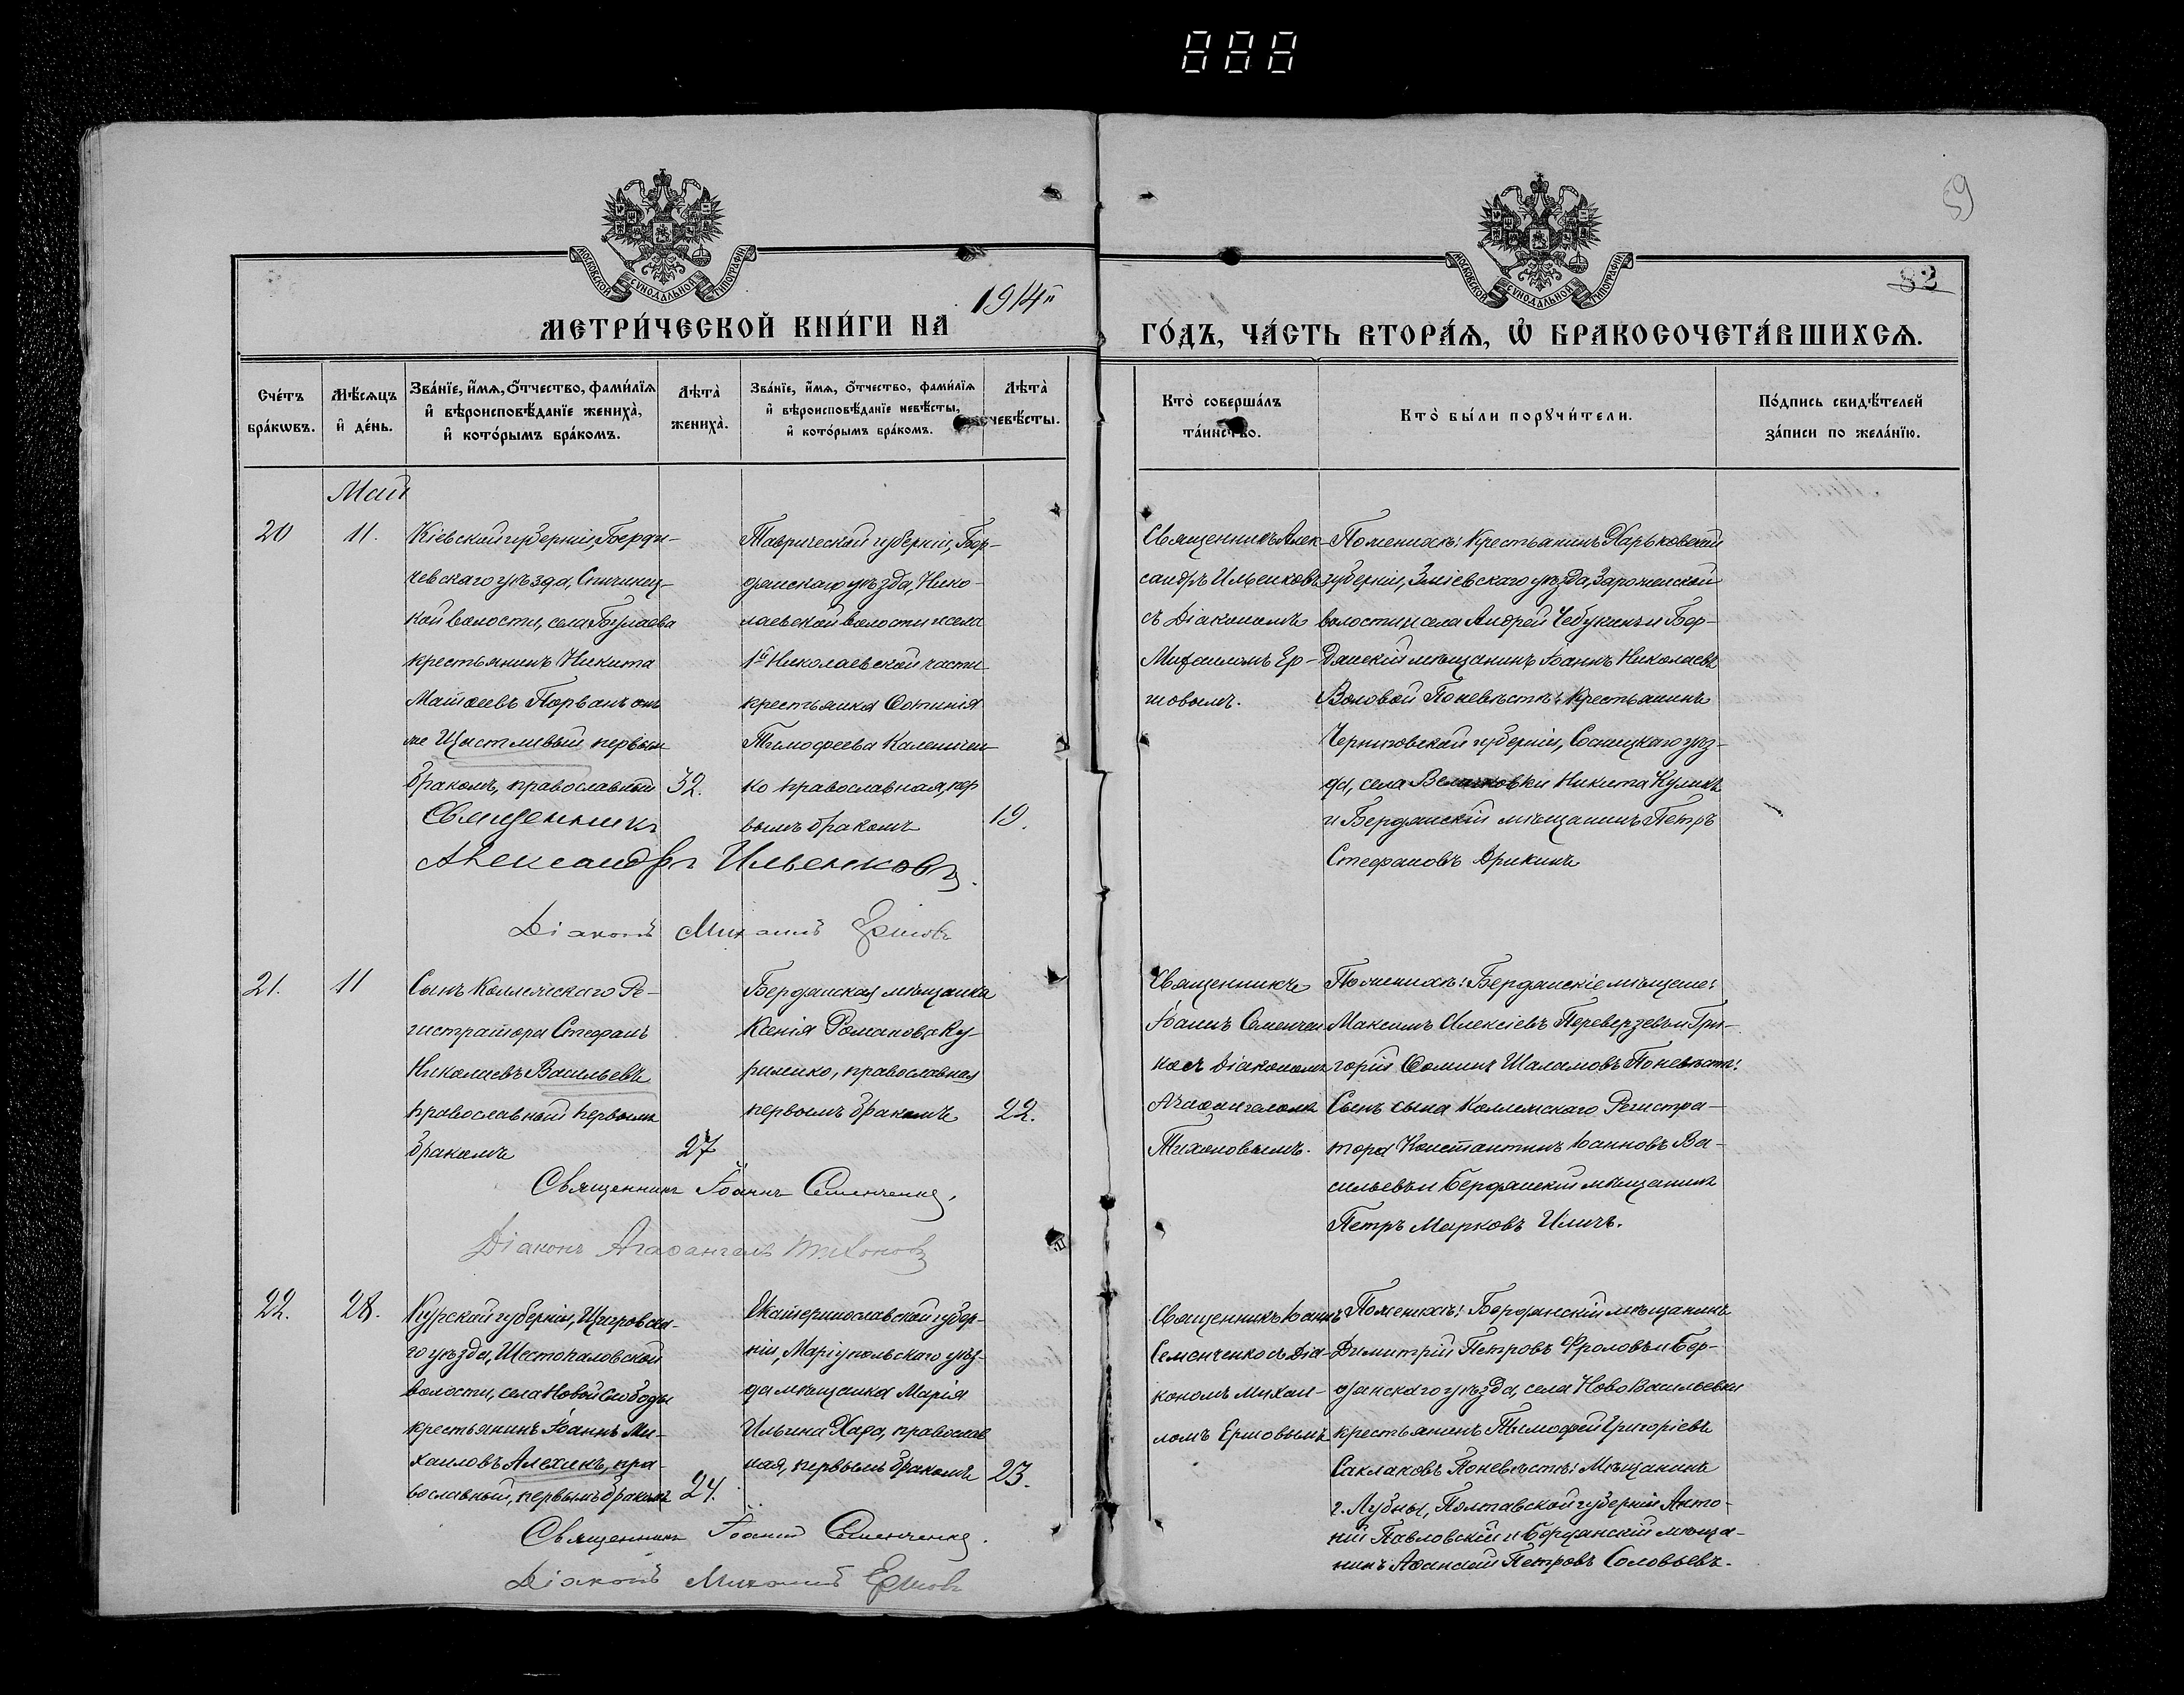 59
82
МОСКОВСКОЙ СѴНОДАЛЬНОЙ ТИПОГРАФІИ
МОСКОВСКОЙ СѴНОДАЛЬНОЙ ТИПОГРАФІИ
МЕТРИ́ЧЕСКОЙ КНИ́ГИ НА 1914й ГО́ДЪ, ЧА́СТЬ ВТОРА́Ѧ, Ѽ БРАКОСОЧЕТА́ВШИХСѦ.
Сче́тъ бра́кѡвъ.
Мѣ́сяцъ и҆ де́нь.
Зва́нїе, и҆́мѧ, ѻ҆́тчество, фами́лїѧ и҆ вѣроисповѣ́данїе жениха̀, и҆ кото́рымъ бра́комъ.
Лѣта̀ жениха̀.
Зва́нїе, и҆́мѧ, ѻ҆́тчество, фами́лїѧ и҆ вѣроисповѣ́данїе невѣ́сты, и҆ кото́рымъ бра́комъ.
Лѣта̀ невѣ́сты.
Кто̀ соверша́лъ та́инство.
Кто̀ бы́ли порꙋчи́тели.
По́дпись свидѣ́телей за́писи по жела́нїю.
Май
20
11.
Кіевской губерніи, Берди-
чевскаго уѣзда, Спичинец-
кой волости, села
крестьянинъ Никита
Матѳеевъ Порванъ онъ
же Щастливый первым
бракомъ, православный
32.
Таврической губерніи, Бер-
дянскаго уѣзда, Нико-
лаевской волости и села
1й Николаевской части
крестьянка Фотинія
Тимофеева Калениченко
ко православная, пер
вымъ бракомъ
19.
Священникъ Алек-
сандръ Ильенковъ
съ Діакономъ
Михаиломъ Ер-
шовымъ.
По женихѣ: Крестьянинъ Харьковской
губерніи, Зміевскаго уѣзда, Зароженской
волости и села Андрей Чебукинъ и Бер-
дянскій мѣщанинъ Іоаннъ Николаевъ
Воловой По невѣстѣ: Крестьянинъ
Черниговской губерніи, Сосницкаго уѣз-
да, села Никита Куликъ
и Бердянскій мѣщанинъ Петръ
Стефановъ Арикинъ
Священникъ
Александръ Ильенковъ.
Діаконъ Михаилъ Ершовъ
21.
11
Сынъ Коллежскаго Ре-
гистратора Стефанъ
Николаевъ Васильевъ
православный первымъ
бракомъ
27
Бердянская мѣщанка
Ксенія Романова Ку-
риленко, православная
первымъ бракомъ
22.
Священникъ
Іоаннъ Семенчен
ко съ Діакономъ
Агафангеломъ
Тихоновымъ.
По женихѣ: Бердянскіе мѣщане:
Максимъ Алексіевъ Переверзевъ и Гри-
горій Фоминъ Шаламовъ По невѣстѣ:
Сынъ сына Коллежскаго Регистра-
тора Константинъ Іоанновъ Ва-
сильевъ и Бердянскій мѣщанинъ
Петръ Марковъ Иличъ.
Священникъ Іоаннъ Семенченко.
Діаконъ Агафангелъ Тихоновъ
22.
28.
Курской губерніи, Щигровска-
го уѣзда, Шестопаловской
волости, села Новой Слободы
крестьянинъ Іоаннъ Ми-
хаиловъ Алехинъ, пра-
вославный, первымъ бракомъ
24.
Екатеринославской губер-
ніи, Маріупольскаго уѣз-
да мѣщанка Марія
Ильина Хара, православ
ная, первымъ бракомъ
23.
Священникъ Іоаннъ
Семенченко съ Діа-
кономъ Михаи-
ломъ Ершовымъ
По женихѣ: Бердянскій мѣщанинъ
Димитрій Петровъ Фроловъ и Бер-
дянскаго уѣзда, села Ново Васильевки
крестьянинъ Тимофей Григоріевъ
Саклаковъ По невѣстѣ: Мѣщанинъ
г. Лубны, Полтавской губерніи Анто-
ній Павловскій и Бердянскій мѣща-
нинъ Афанасій Петровъ Соловьевъ.
Священникъ Іоаннъ Семенченко.
Діаконъ Михаилъ Ершовъ